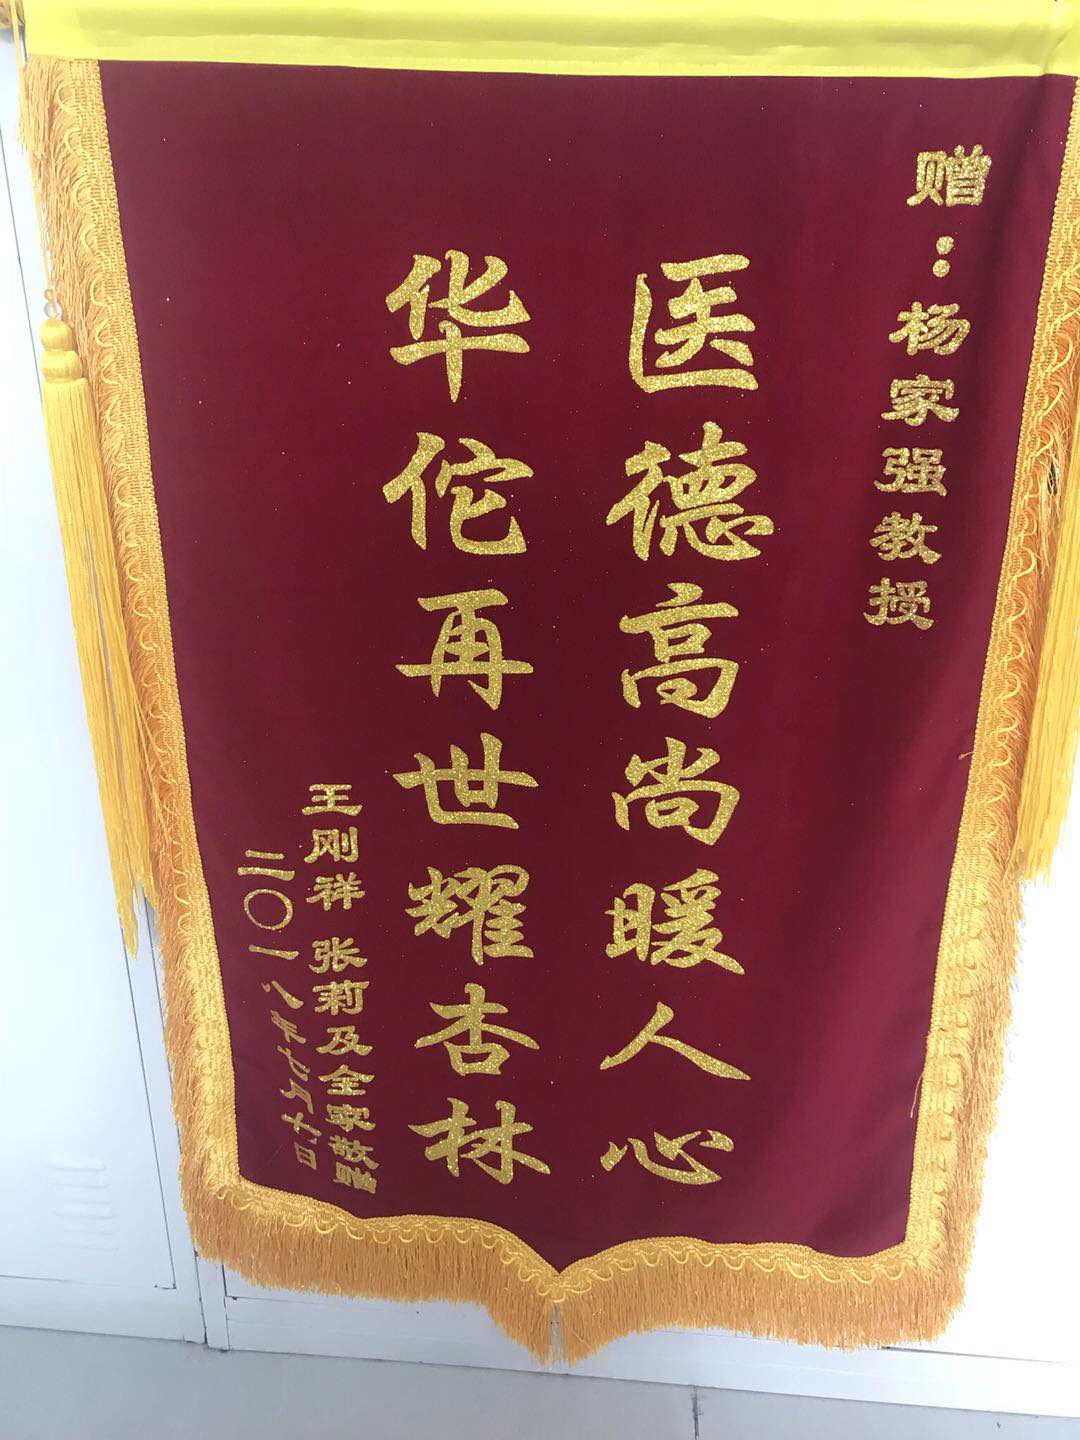 赠：杨家强教授
医德高尚暖人心
华佗再世耀杏林
王刚祥 张莉及全家敬赠
二〇一八年七月十八日